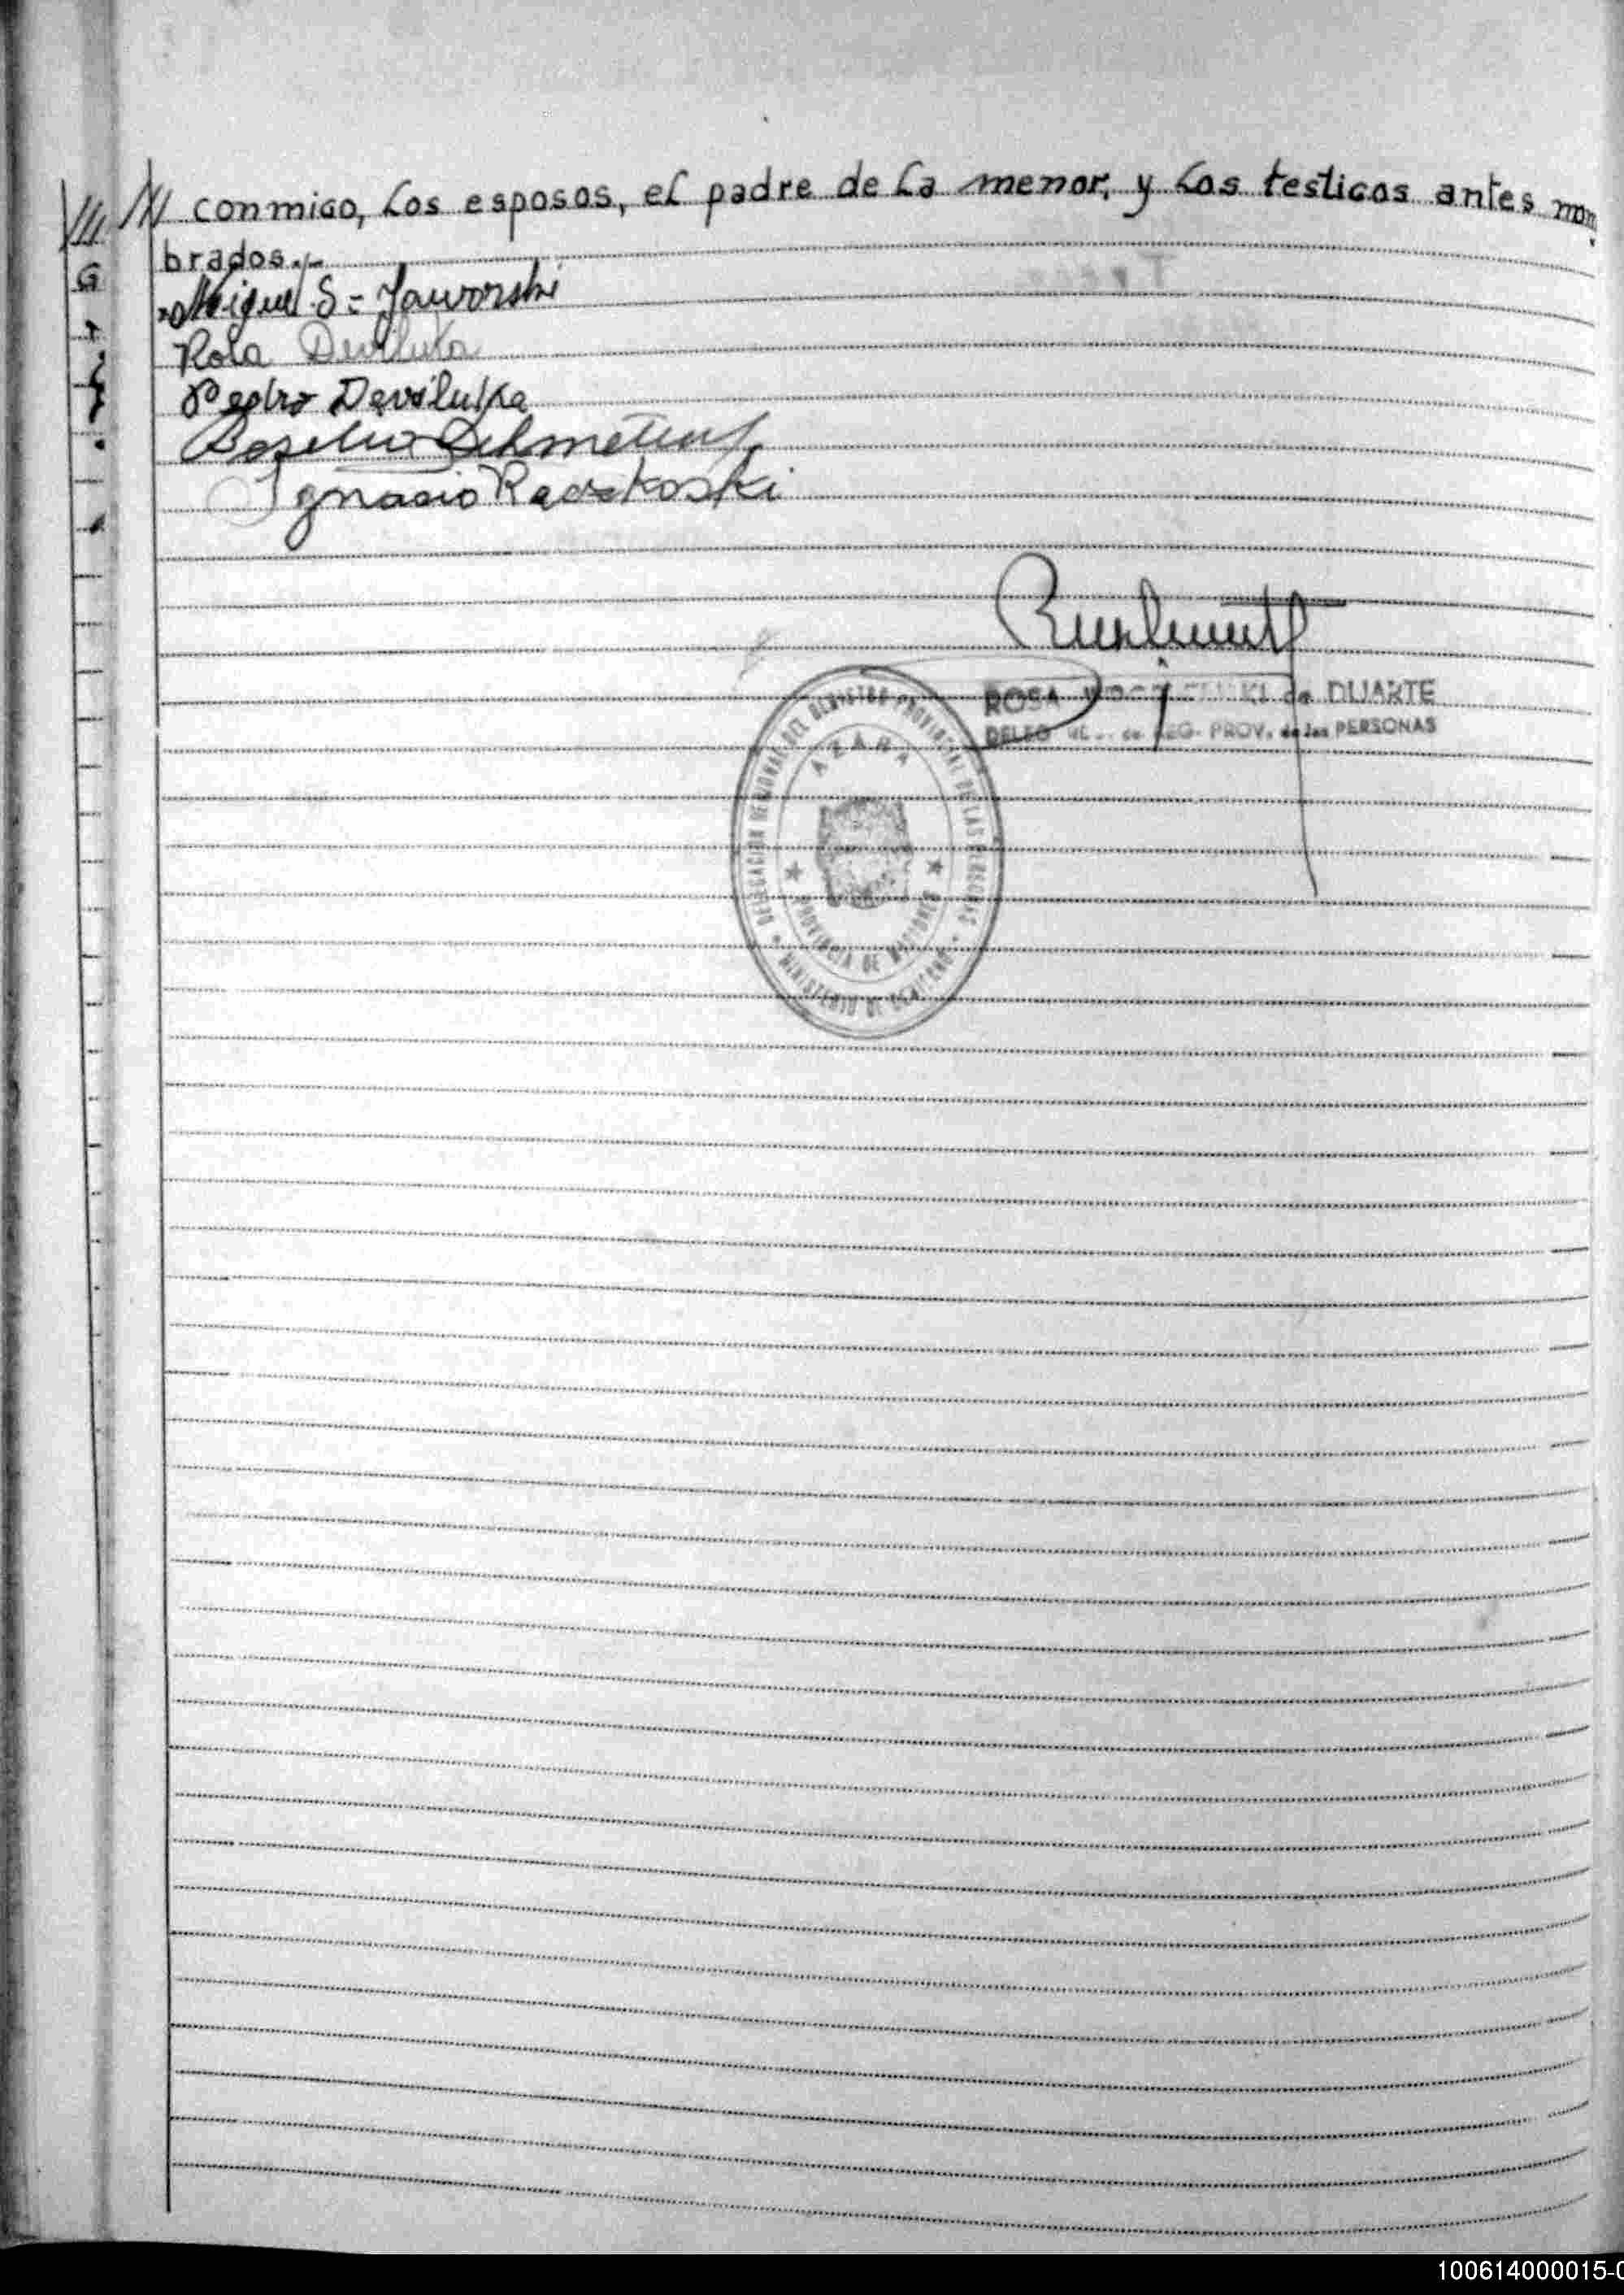 /// conmigo, los esposos, el padre de la menor, y los testigos antes nom
brados.-
Miguel S = Jaworski
Rosa Deviluka
Pedro Deviluka
Ignacio Rauskoski
ROSA de DUARTE
REG. PROV. de las PERSONAS
DELEGACION REGIONAL DEL REGISTRO PROVINCIAL DE LAS PERSONAS
AZARA
PROVINCIA DE MISIONES
MINISTERIO DE GOBIERNO
100614000015-0